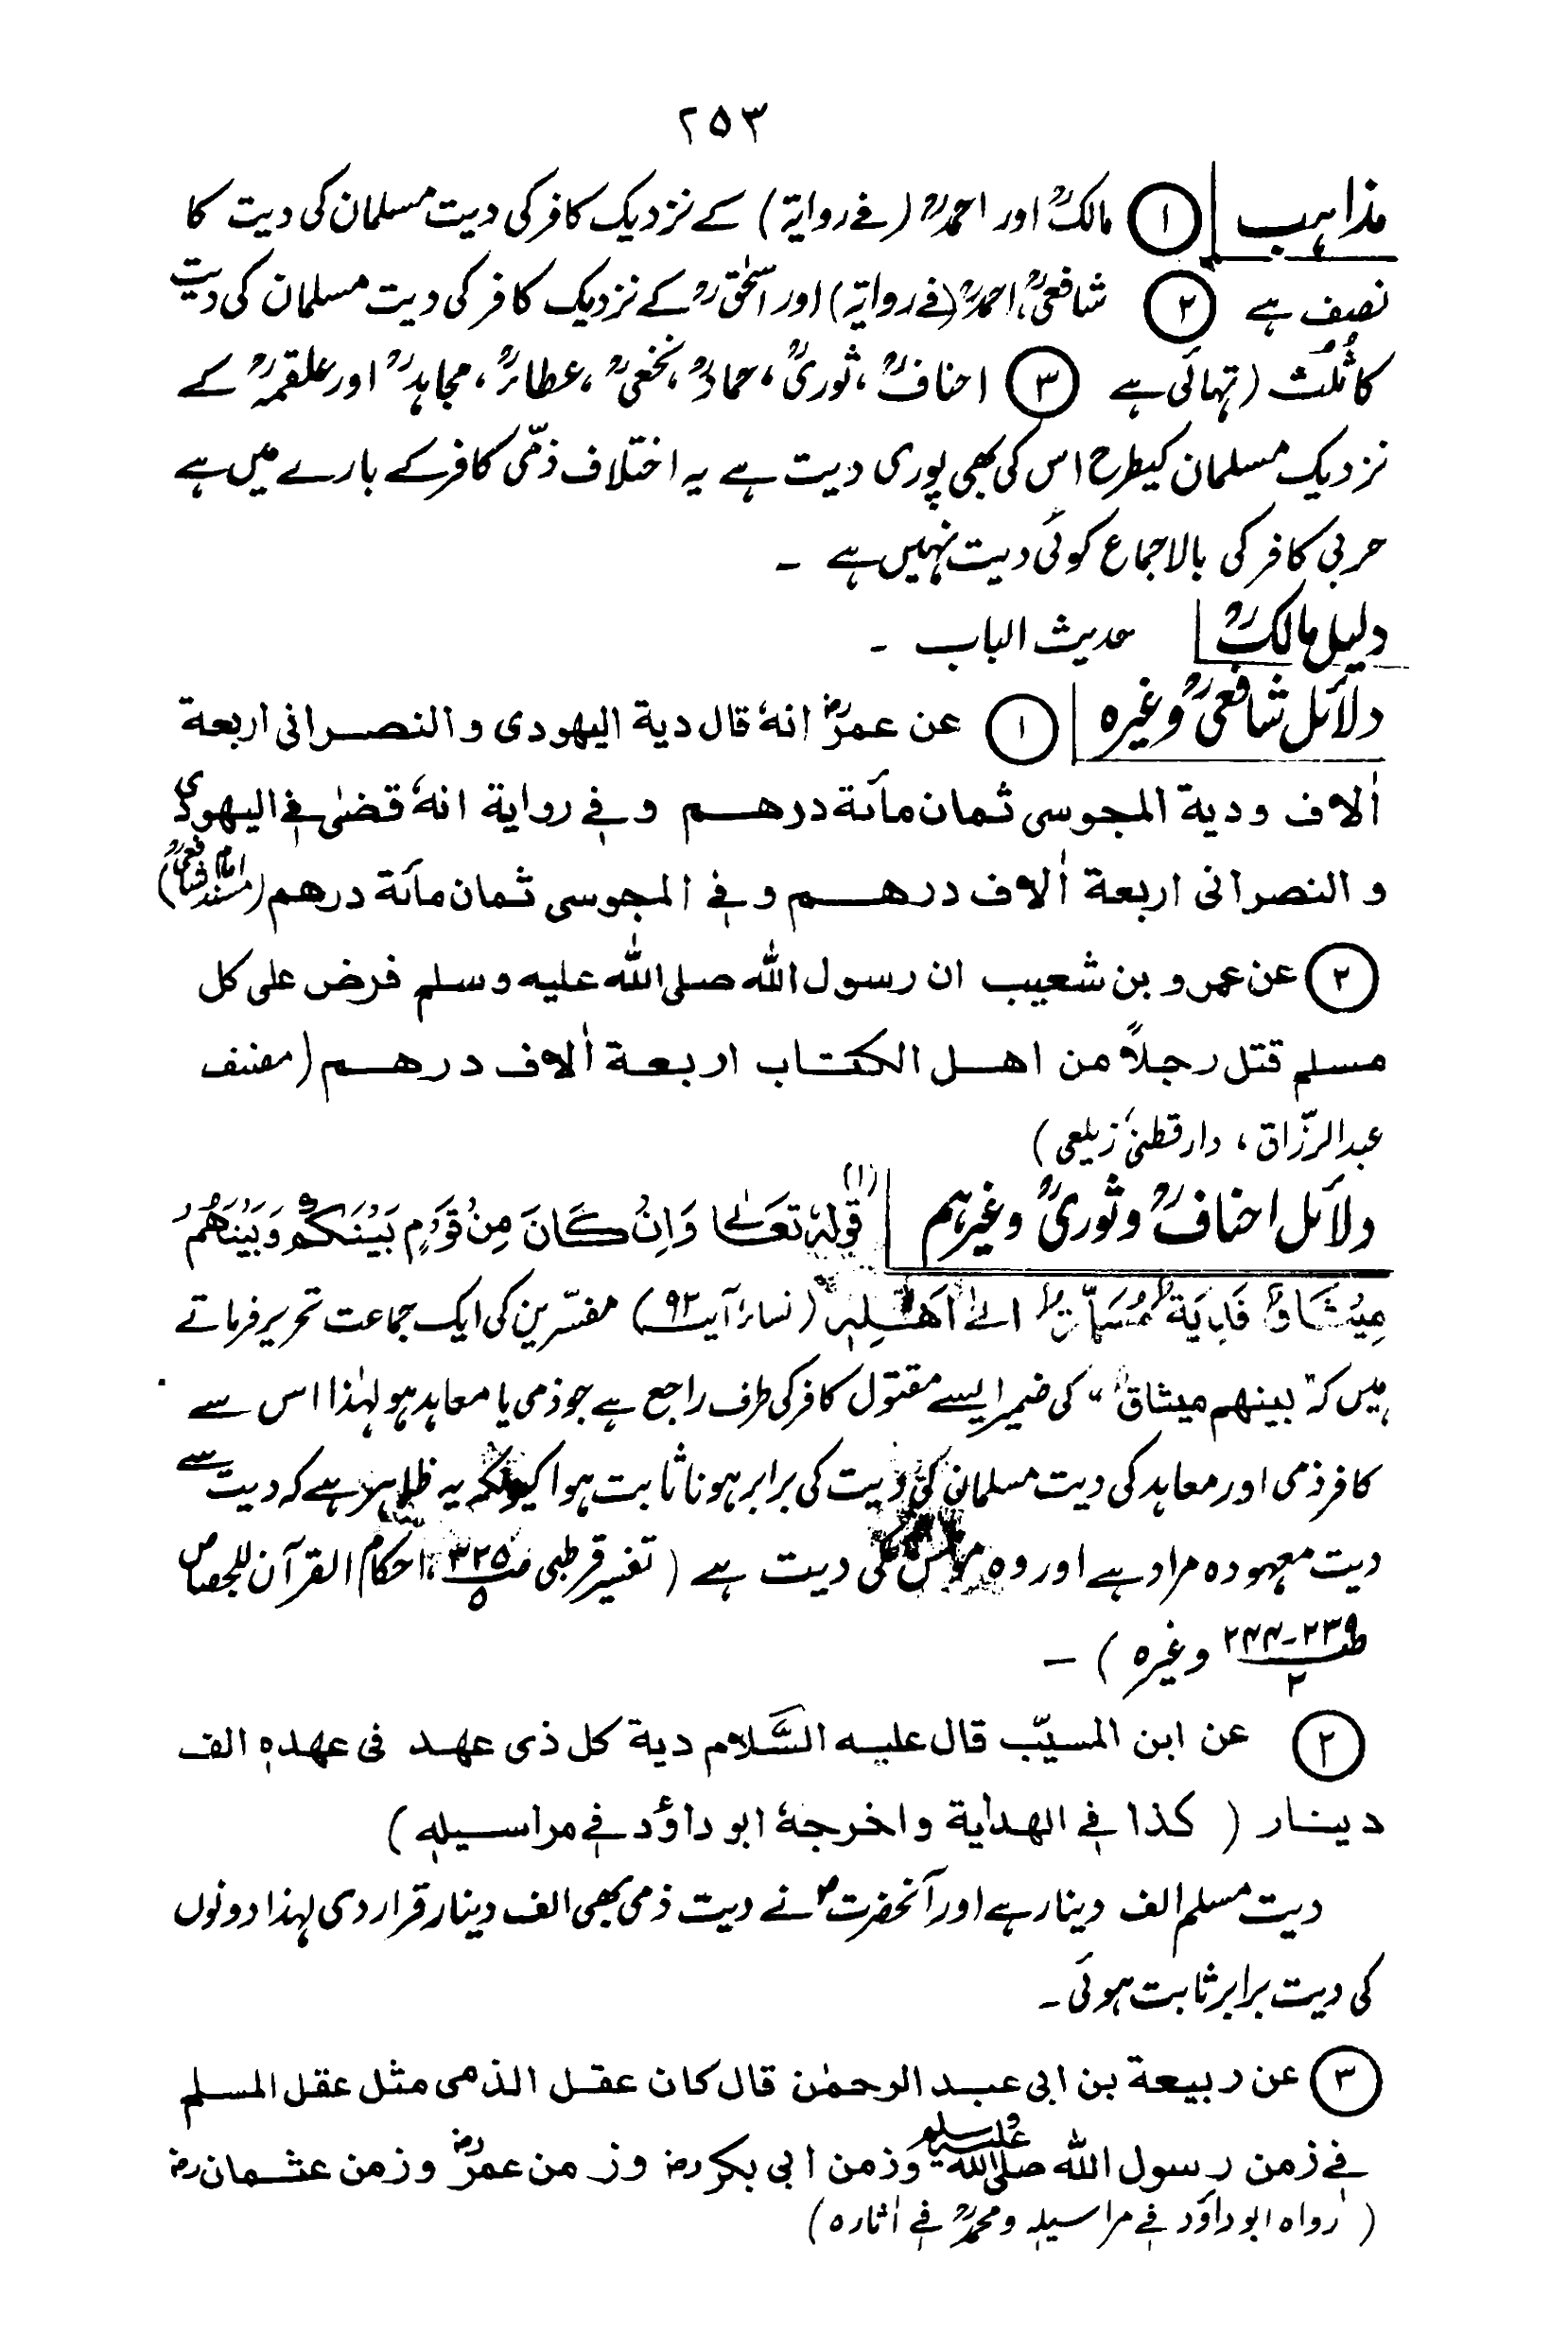 ۲۵۳
مذاہب ① مالکؒ اور احمدؒ (فے روایۃ) کے نزدیک کافر کی دیت مسلمان کی دیت کا
نصف ہے ② شافعیؒ، احمدؒ (فے روایۃ) اور اسحٰقؒ کے نزدیک کافر کی دیت مسلمان کی دیت
کا ثُلُث (تہائی ہے ③ احنافؒ، ثوریؒ، حمادؒ، نخعیؒ، عطاءؒ، مجاہدؒ اور علقمہؒ کے
نزدیک مسلمان کیطرح اس کی بھی پوری دیت ہے یہ اختلاف ذمّی کافر کے بارے میں ہے
حربی کافر کی بالاجماع کوئی دیت نہیں ہے ۔
دلیل مالکؒ حدیث الباب ۔
دلائل شافعیؒ وغیرہ ① عن عمرؓ انہٗ قال دیۃ الیھودی و النصرانی اربعۃ
اٰلاف ودیۃ المجوسی ثمان مائۃ درھم وفے روایۃ انہٗ قضیٰ فے الیھودی
و النصرانی اربعۃ اٰلاف درھم وفے المجوسی ثمان مائۃ درھم (مسند امام شافعیؒ)
② عن عمرو بن شعیب ان رسول اللّٰہ صلی اللّٰہ علیہ وسلم فرض علی کل
مسلم قتل رجلاً من اھل الکتاب اربعۃ اٰلاف درھم (مصنف
عبدالرزّاق، دارقطنی، زیلعی)
دلائل احنافؒ وثوریؒ وغیرہم (۱) قولہٗ تعالےٰ وَاِنْ کَانَ مِنْ قَوْمٍ بَیْنَکُمْ وَبَیْنَھُمْ
مِیْثَاقٌ فَدِیَۃٌ مُّسَلَّمَۃٌ الےٰ اَھْلِہٖ (نساء آیت ۹۲) مفسّرین کی ایک جماعت تحریر فرماتے
ہیں کہ "بینھم میثاق" کی ضمیر ایسے مقتول کافر کی طرف راجع ہے جو ذمی یا معاہد ہو لہٰذا اس سے
کافر ذمی اور معاہد کی دیت مسلمان کی دیت کی برابر ہونا ثابت ہوا کیونکہ یہ ظاہر ہے کہ دیت سے
دیت معہودہ مراد ہے اور وہ کی دیت ہے (تفسیر قرطبی ص۳۲۵/۵، احکام القرآن للجصاص
ص۲۳۹-۲۴۴/۲ وغیرہ) ۔
② عن ابن المسیّب قال علیہ السَّلام دیۃ کل ذی عھد فی عھدہٖ الف
دینار (کذا فے الھدایۃ واخرجہٗ ابو داؤد فے مراسیلہٖ)
دیت مسلم الف دینار ہے اور آنحضرتؐ نے دیت ذمی بھی الف دینار قرار دی لہذا دونوں
کی دیت برابر ثابت ہوئی ۔
③ عن ربیعۃ بن ابی عبد الرحمٰن قال کان عقل الذمی مثل عقل المسلم
فے زمن رسول اللّٰہ صلی اللّٰہ علیہ وسلم وزمن ابی بکرؓ وزمن عمرؓ وزمن عثمانؓ
(رواہ ابوداؤد فے مراسیلہٖ ومحمدؒ فے اٰثارہ)